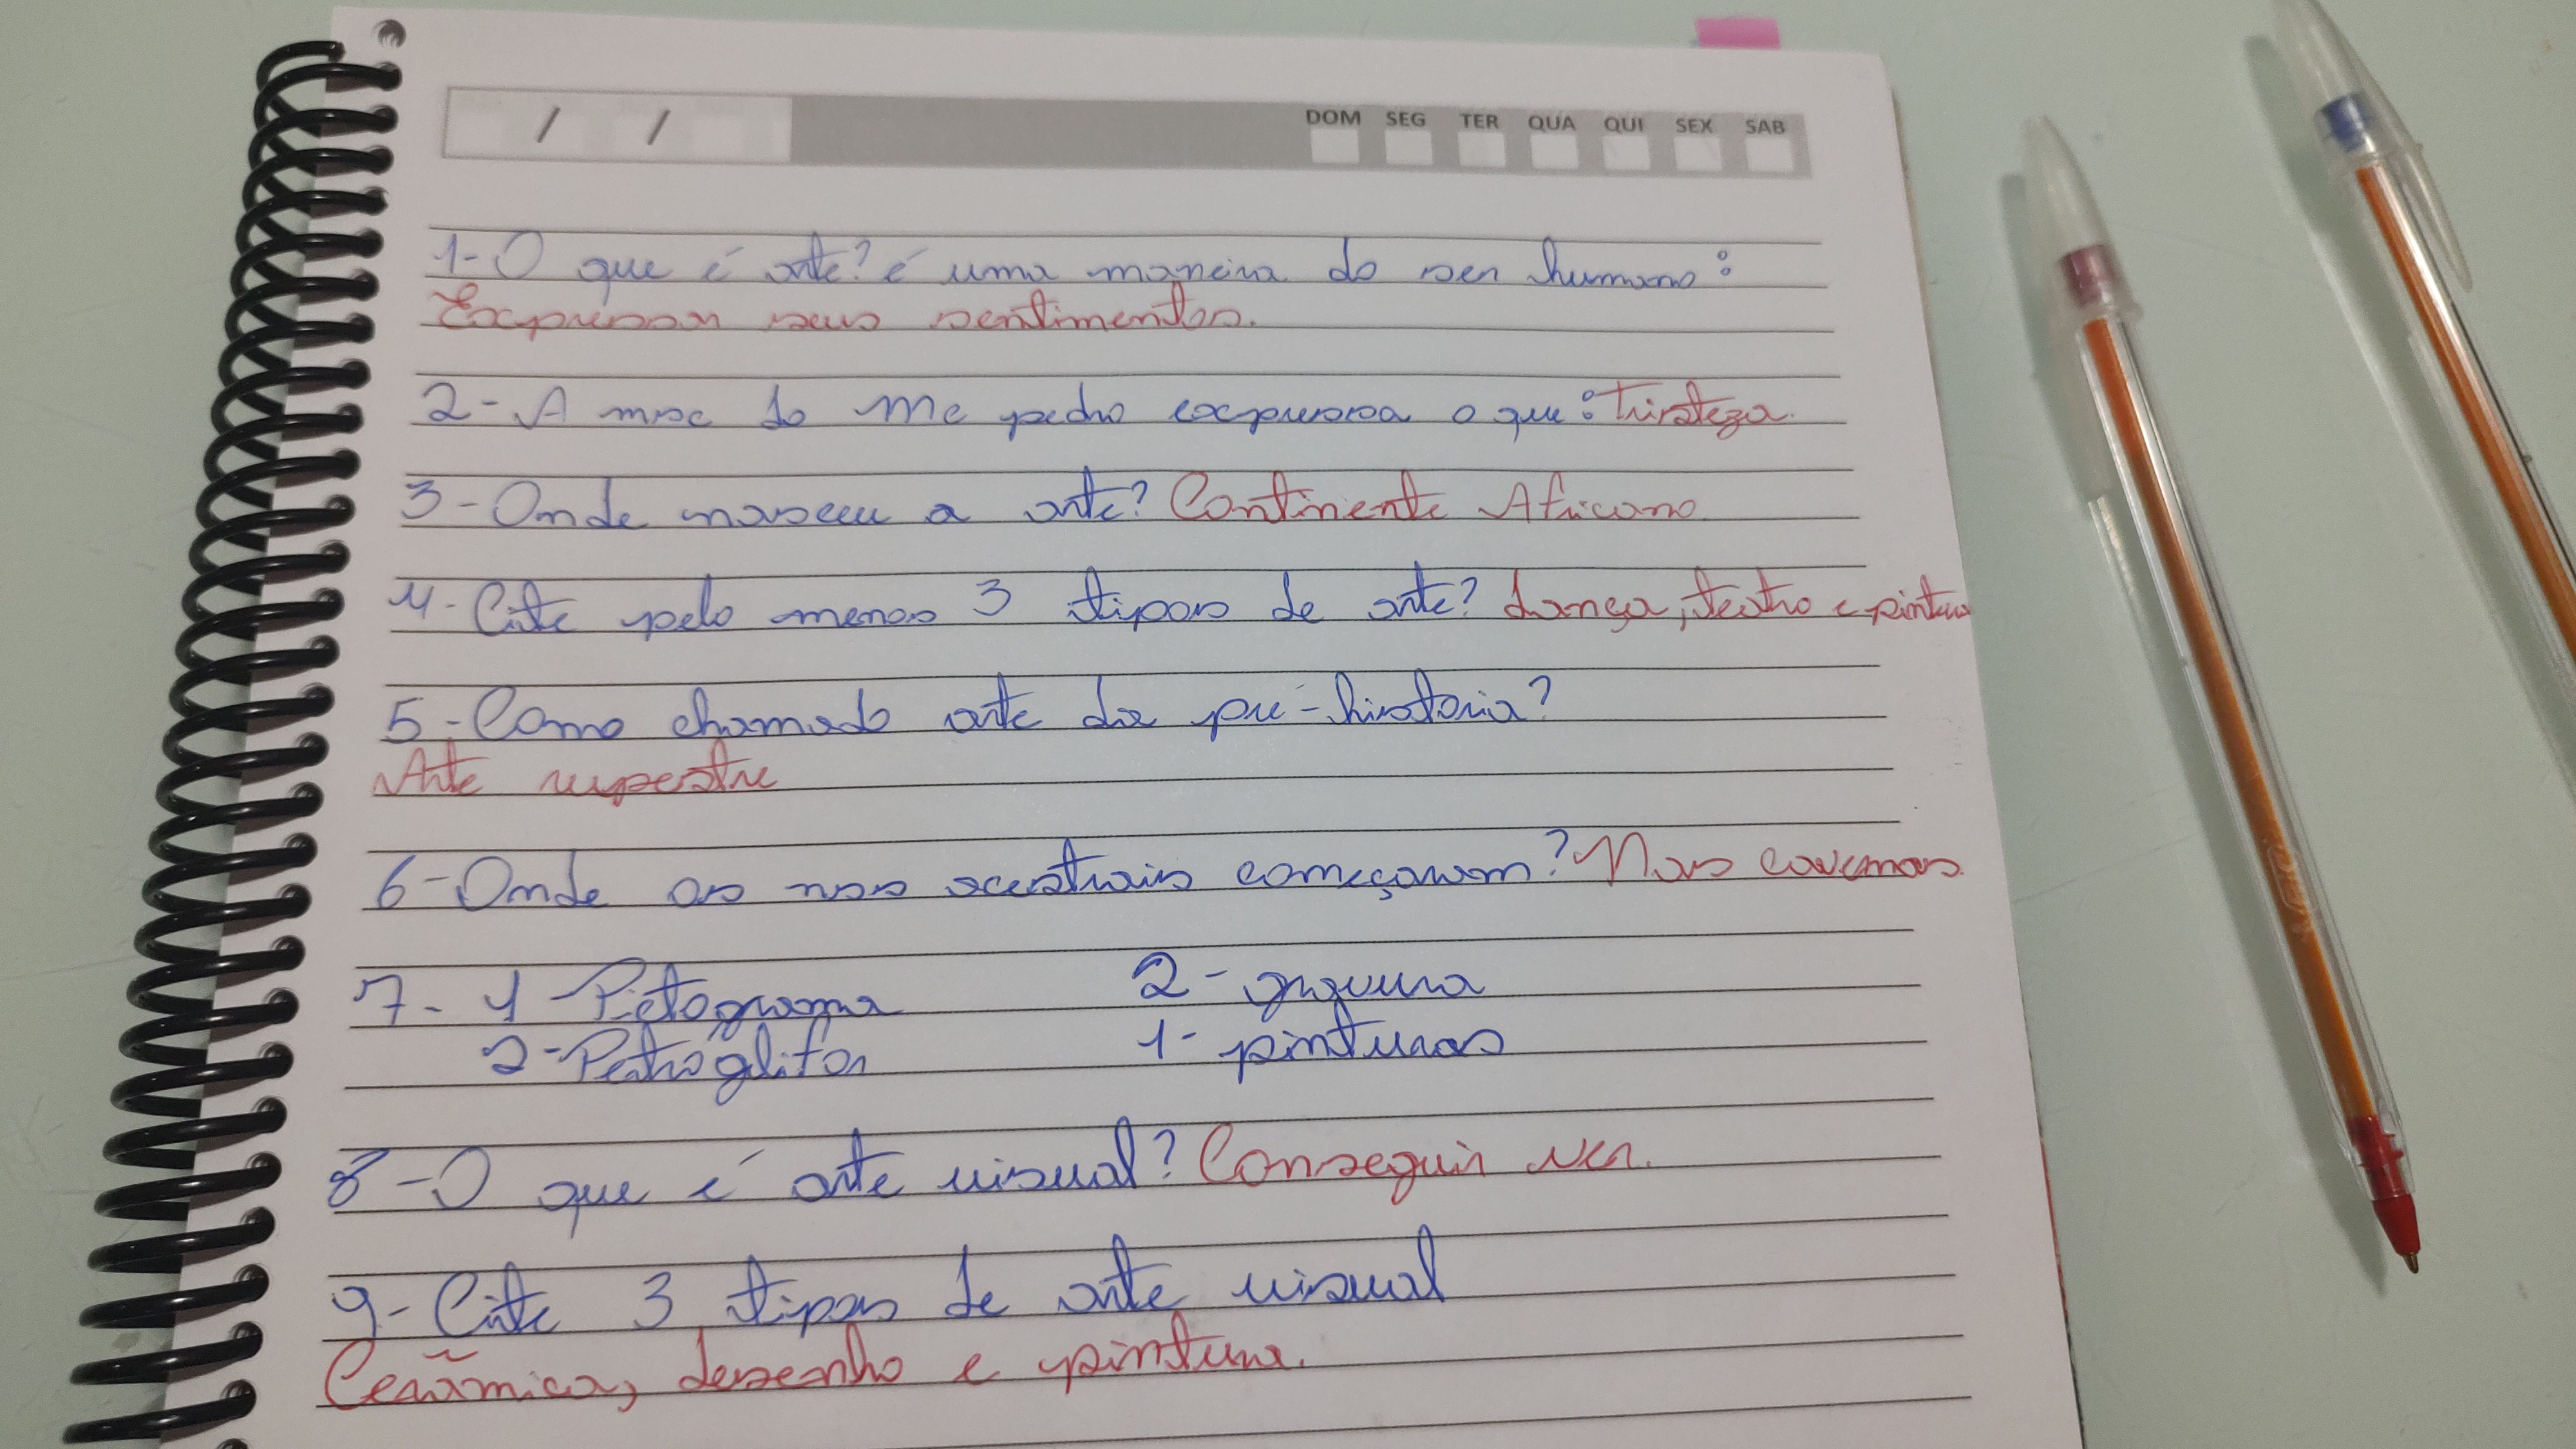 / /
DOM SEG TER QUA QUI SEX SAB
1-O que é arte? é uma maneira do ser humano:
Expressar seus sentimentos.
2-A mse do me pedro expressa o que: tristeza.
3-Onde nasceu a arte? Continente Africano
4-Cite pelo menos 3 tipos de arte? dança, teatro e pintura
5-Como chamado arte da pré-historia?
Arte rupestre
6-Onde as nos acestrais começaram? Nas cavernas.
7- 1-Pictograma 2-gravura
2-Petroglifos 1-pinturas
8-O que é arte visual? Conseguir ver.
9-Cite 3 tipos de arte visual
Cerâmica, desenho e pintura.